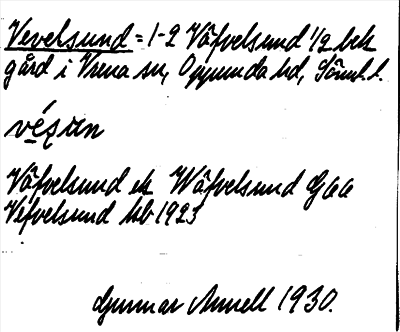 Vevelsund = 1-2 Väfvelsund 1/2 bek
gård i Vrena sn, Oppunda hd, Sörml. l.
Väfvelsund ek Wäfvelsund Gaa
Vefvelsund kb 1923
Gunnar Arnell 1930.